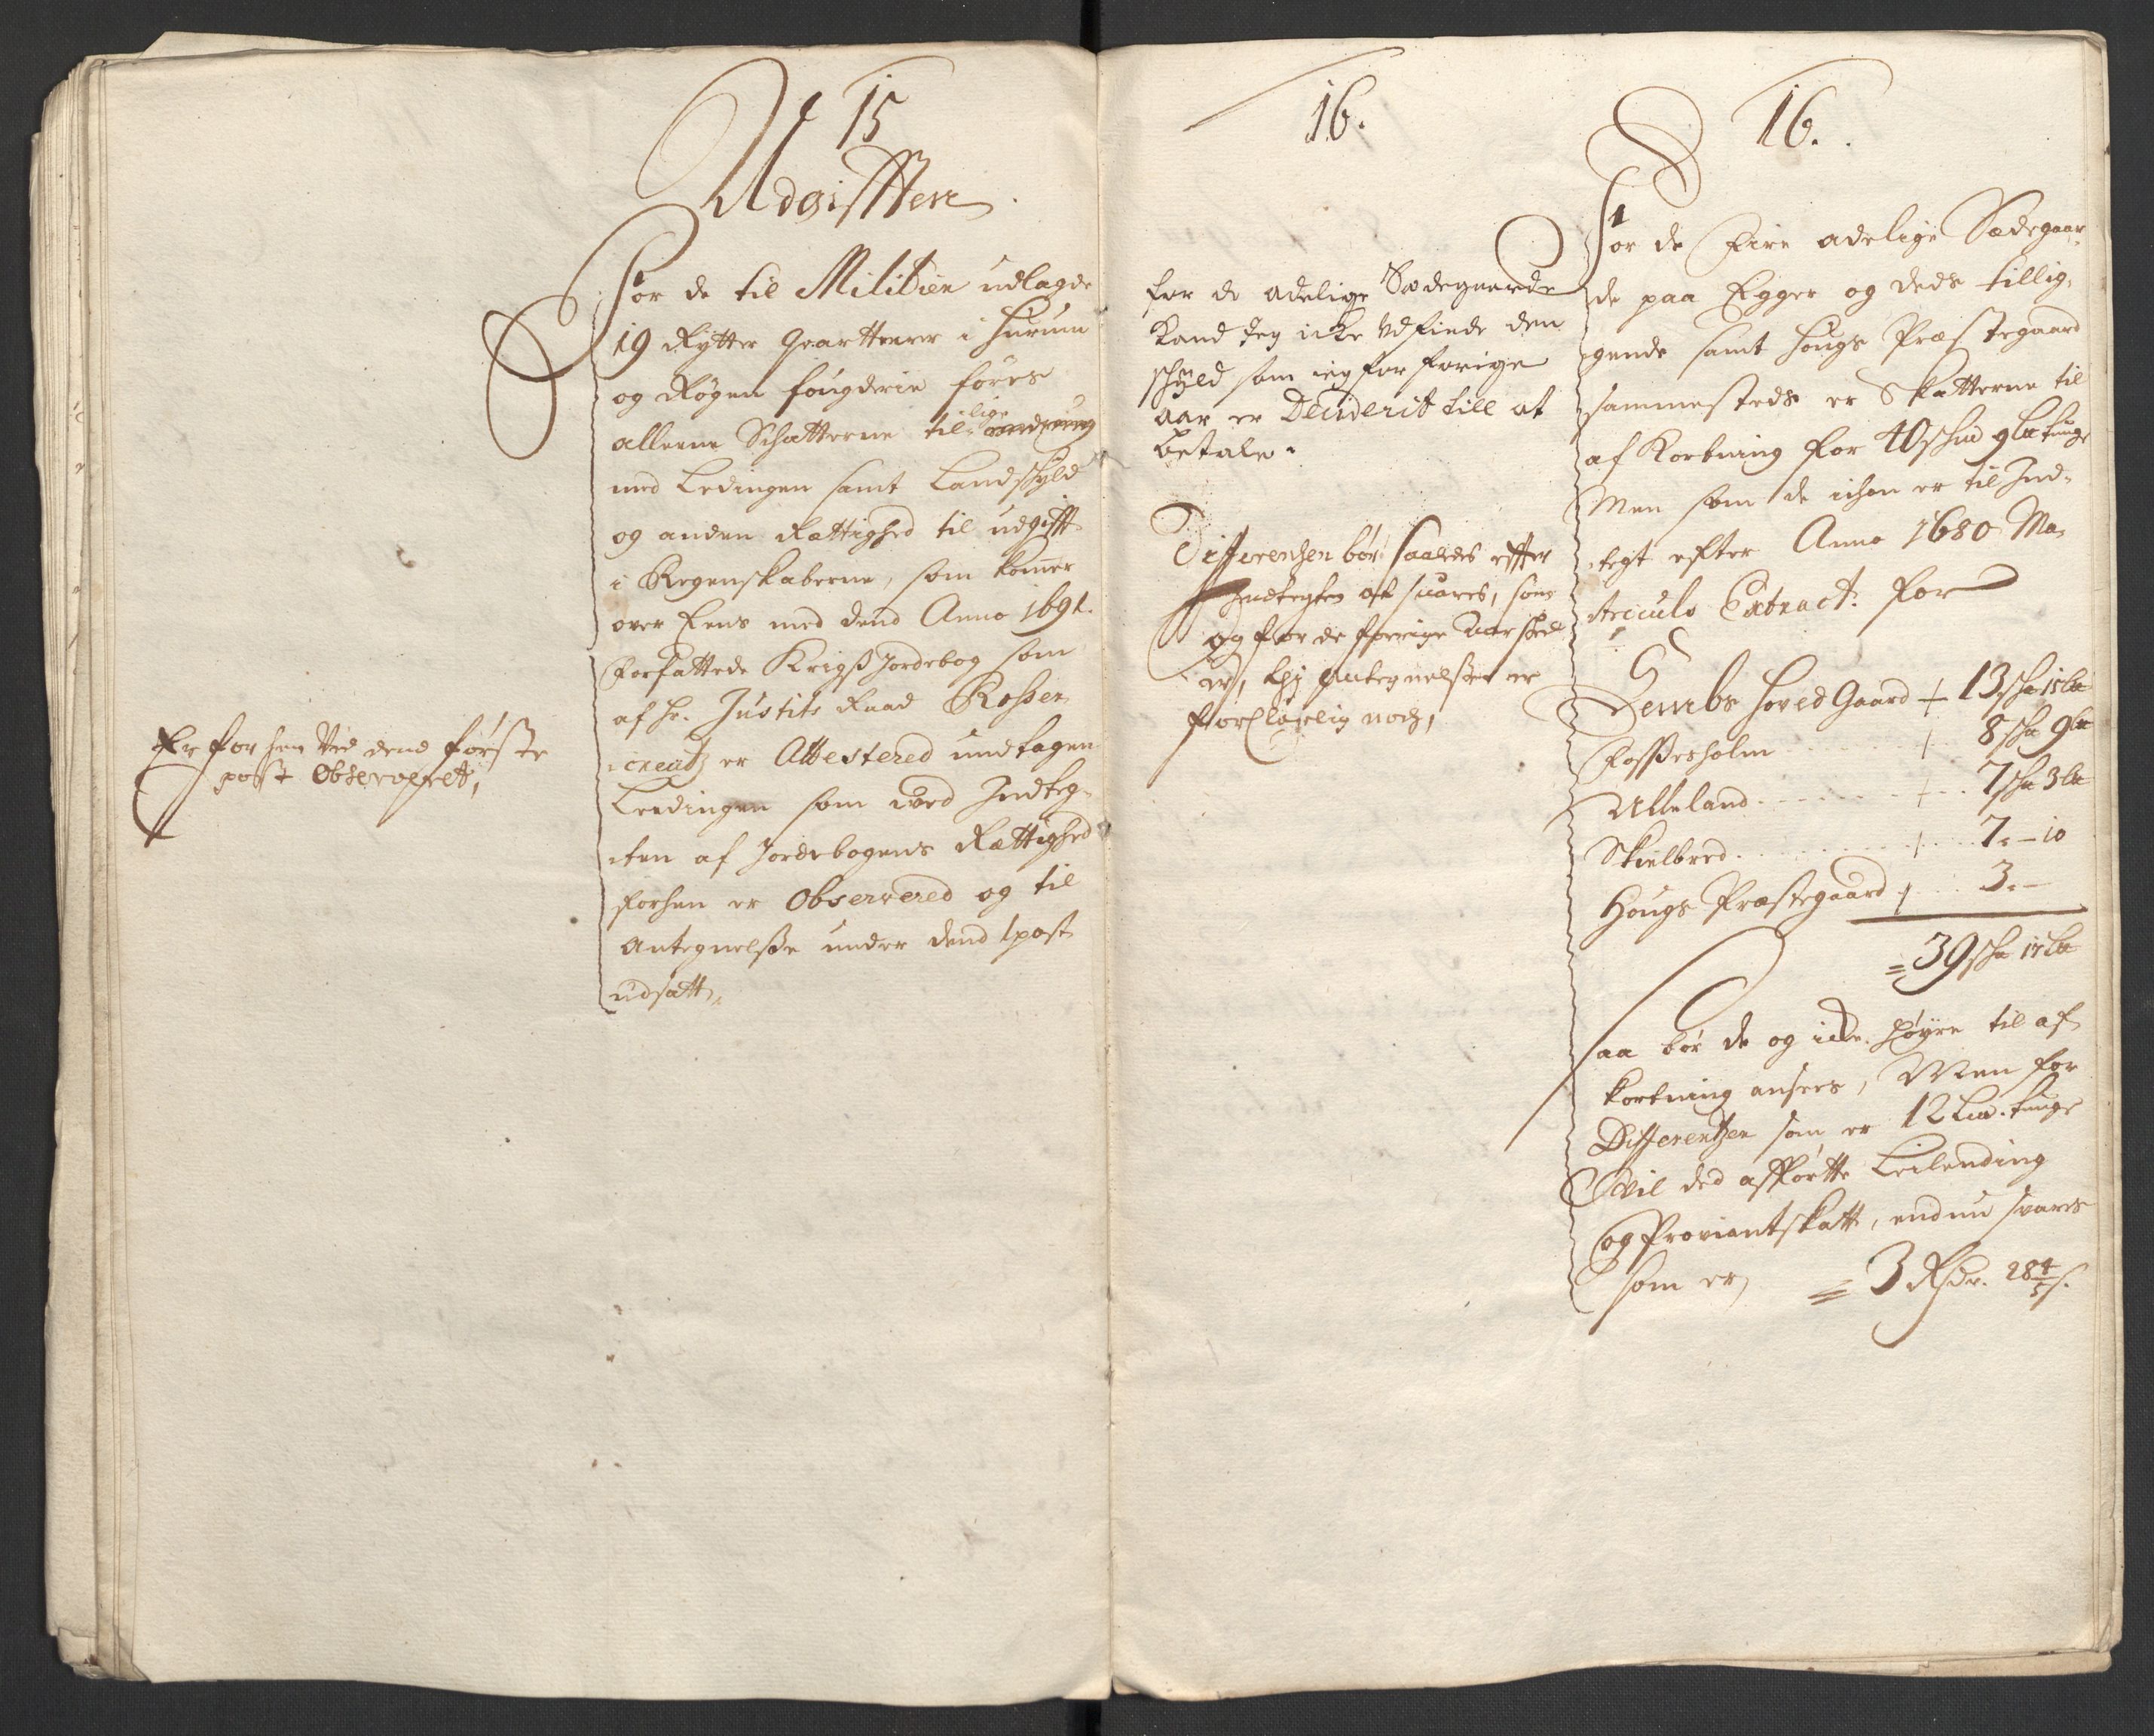 15
Udgifften
For de til Militien udlagde
19 Rytter Quarterer i Hurum
og Røgen fougderie føres
allerne Schatterne til lige
med Ledingen samt Landskyld
og anden Rettighed til udgifft
i Regenskaberne, som komer
over Eens med dend Anno 1691.
forfattede Krigs Jordebog som
af Hr. Justits Raad Rosen
creutz er Attestered undtagen
Leedingen som ved Indteg-
ten af Jordebogens Rettighed
forhen er Observered og til
Antegnelsse under dend 1 post
udsatt,
Er forhen Ved dend første
post Observeret,
16.
for de adelige Sædegaarde
Kand Jeg icke Udfinde den
schyld som ieg for forige
aar er Deciderit till at
betale.
Differentzen bør saaledes effter
Indtegten at suares, som
og for de forrige Aar skeed
er, thj Antegnelssen er
klarlig nock,
16.
For de Fire adelige Sædegaar-
de paa Egger og deds tillig-
gende samt Hougs Præstegaard
sammesteds er Skatterne til
af Kortning for 40 schud 9 lb tunge
Men som de ichon er til Ind-
tegt efter Anno 1680 Ma-
triculs Extract: for
Sembs Hoved Gaard + 13 sch 15 lb
Fossesholm + 8 sch 9 lb
Ulleland + 7 sch 3 lb
Skielbred + 7 - 10
Hougs Præstegaard + 3 -
= 39 sch 17 lb
saa bør de og icke høyre til af-
kortning ansees, Men for
Differentzen som er 12 Lud. tunge
Vil ded affkortte Leilending
og Proviantskatt, endnu svares
som er, = 3 Rdr. 28 4/5 s.